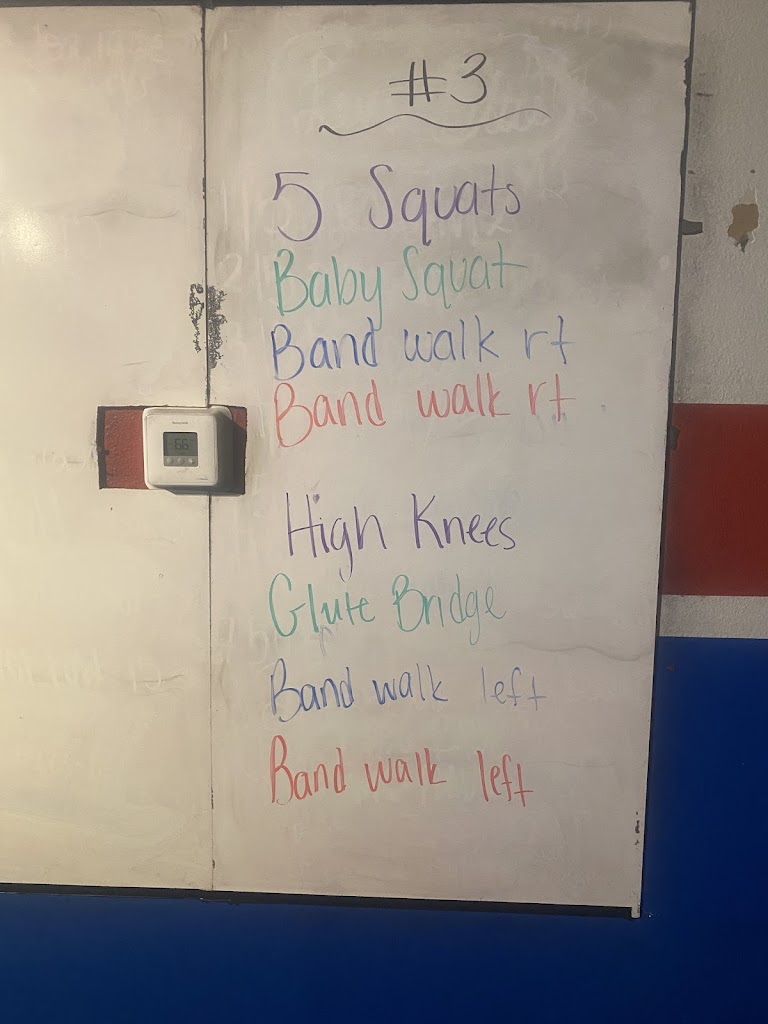 #3
5 Squats
Baby Squat
Band walk rt
Band walk rt
66
High Knees
Glute Bridge
Band walk left
Band walk left